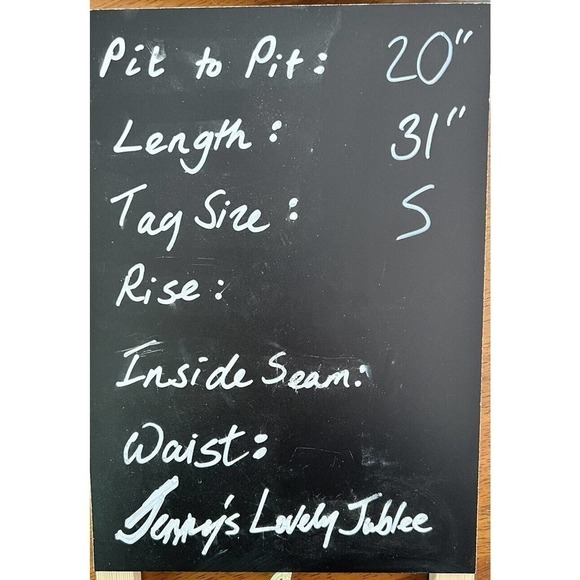 Pit to Pit: 20"
Length: 31"
Tag Size: S
Rise:
Inside Seam:
Waist:
Jenny's Lovely Jublee